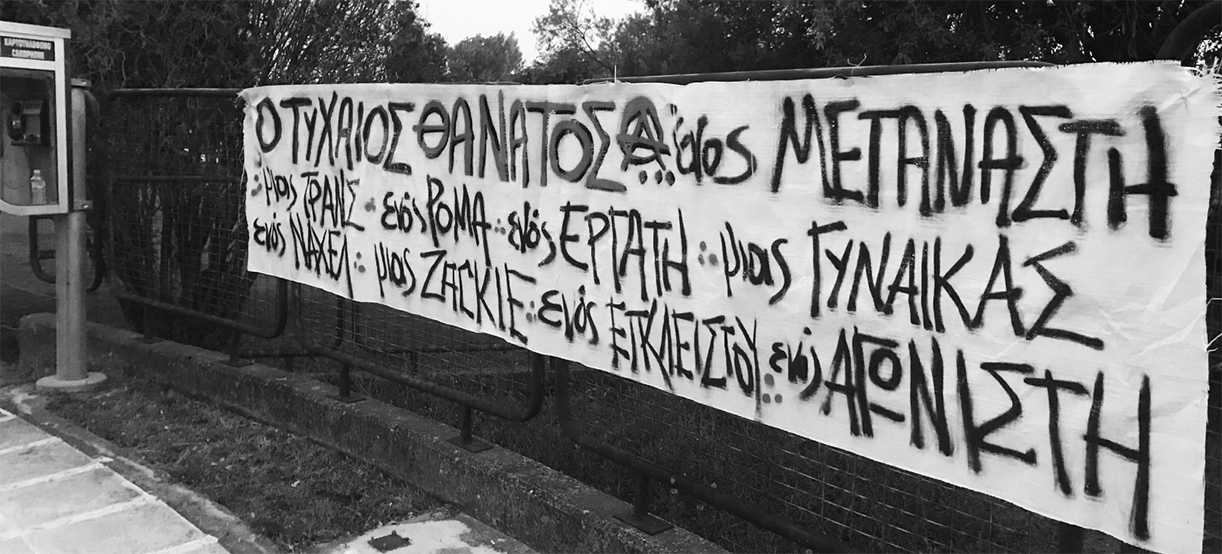 ΚΑΡΤΟΤΗΛΕΦΩΝΟ
CARDPHONE
Ο ΤΥΧΑΙΟΣ ΘΑΝΑΤΟΣ Ⓐ ενος ΜΕΤΑΝΑΣΤΗ
: μιας ΤΡΑΝΣ : ενός ΡΟΜΑ : ενός ΕΡΓΑΤΗ : μιας ΓΥΝΑΙΚΑΣ
ενός ΝΑΧΕΛ : μιας ZACKIE : ενός ΕΓΚΛΕΙΣΤΟΥ : ενός ΑΓΩΝΙΣΤΗ